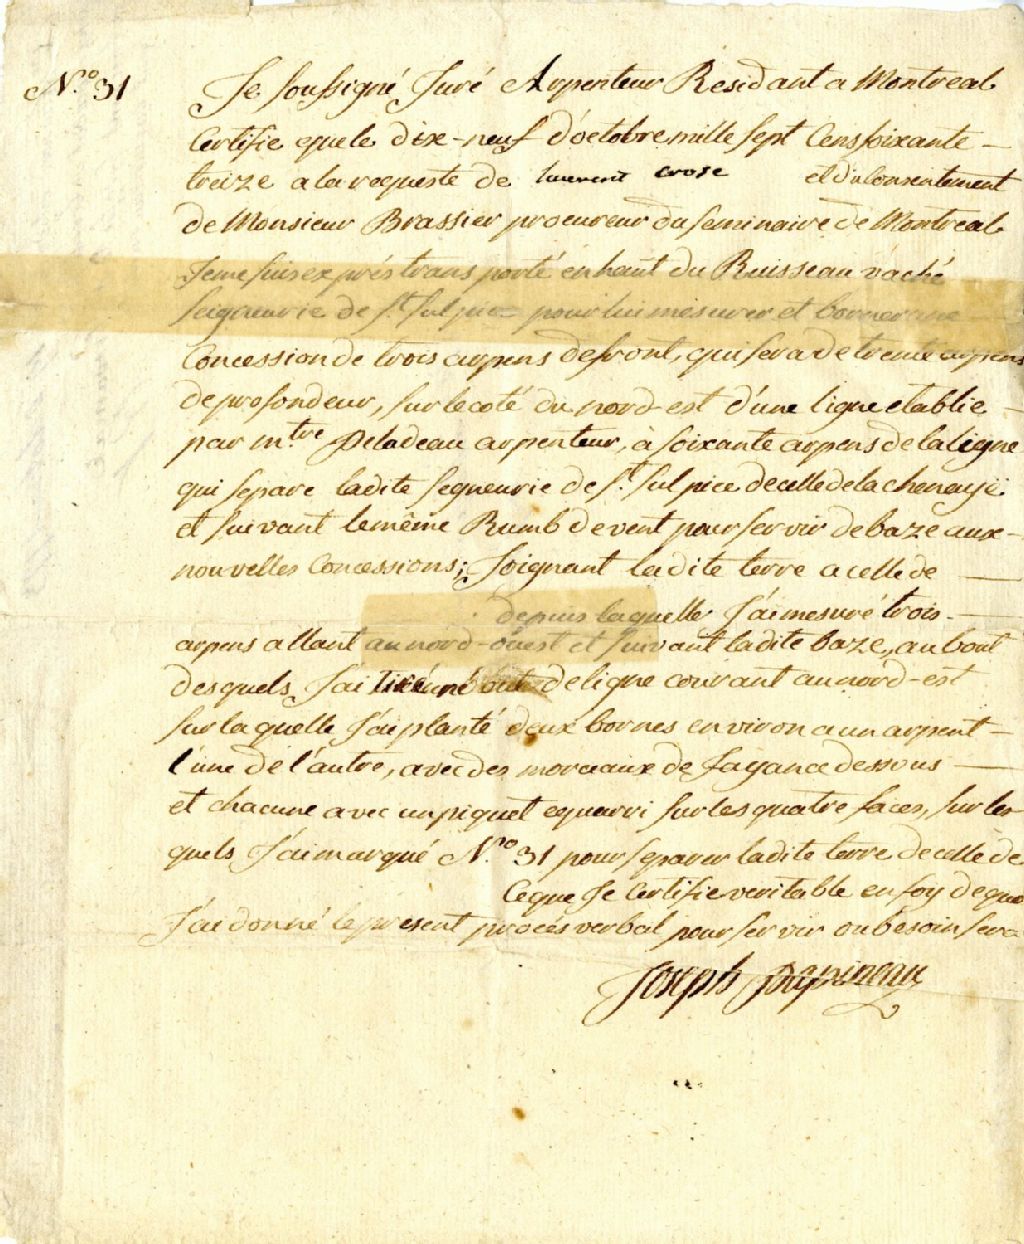 N.º 31
Je Soussigné Juré Arpenteur Residant a Montreal
Certifie que le dix-neuf d'octobre mille sept Cens soixante -
treize a la requeste de laurent crose et du Consentement
de Monsieur Brassier procureur du seminaire de Montreal
Je me suis exprés transporté en haut du Ruisseau vaché
seigneurie de St. Sulpice pour lui mesurer et borner une
Concession de trois arpens de front, qui sera de trente arpens
de profondeur, sur le coté du nord-est d'une ligne etablie
par mtre Peladeau arpenteur, à soixante arpens de la ligne
qui separe ladite segneurie de St. Sulpice de celle de la chenaye
et suivant le même Rumb de vent pour servir de baze aux
nouvelles Concessions; Joignant ladite terre a celle de
depuis laquelle J'ai mesuré trois
arpens allant au nord-ouest et suivant ladite baze, au bout
desquels J'ai tiré un bout de ligne courant au nord-est
sur laquelle J'ai planté deux bornes environ a un arpent
l'une de l'autre, avec des morceaux de fayance dessous
et chacune avec un piquet equarri sur les quatre faces, sur les
quels J'ai marqué N.º 31 pour separer ladite terre de celle de
Ceque Je Certifie veritable en foy de quoi
J'ai donné le present procés verbal pour servir ou besoin sera
Joseph Papineau